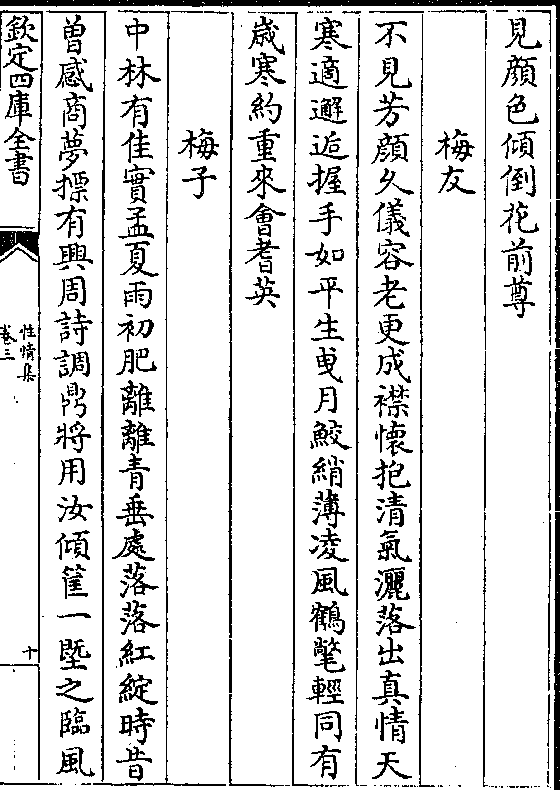 見顔色傾倒花前尊
梅友
不見芳顔久儀容老更成襟懷抱清氣灑落出真情天
寒適邂逅握手如平生曵月鮫綃薄凌風鶴氅輕同有
歲寒約重來會耆英
梅子
中林有佳實孟夏雨初肥離離青垂處落落紅綻時昔
曽感商夢摽有興周詩調鼎將用汝傾筐一塈之臨風
欽定四庫全書
性情集
卷三
十